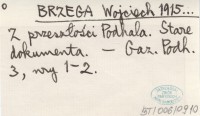 BRZEGA Wojciech 1915...
Z przeszłości Podhala. Stare
dokumenta. – Gaz. Podh.
3, nry 1-2.